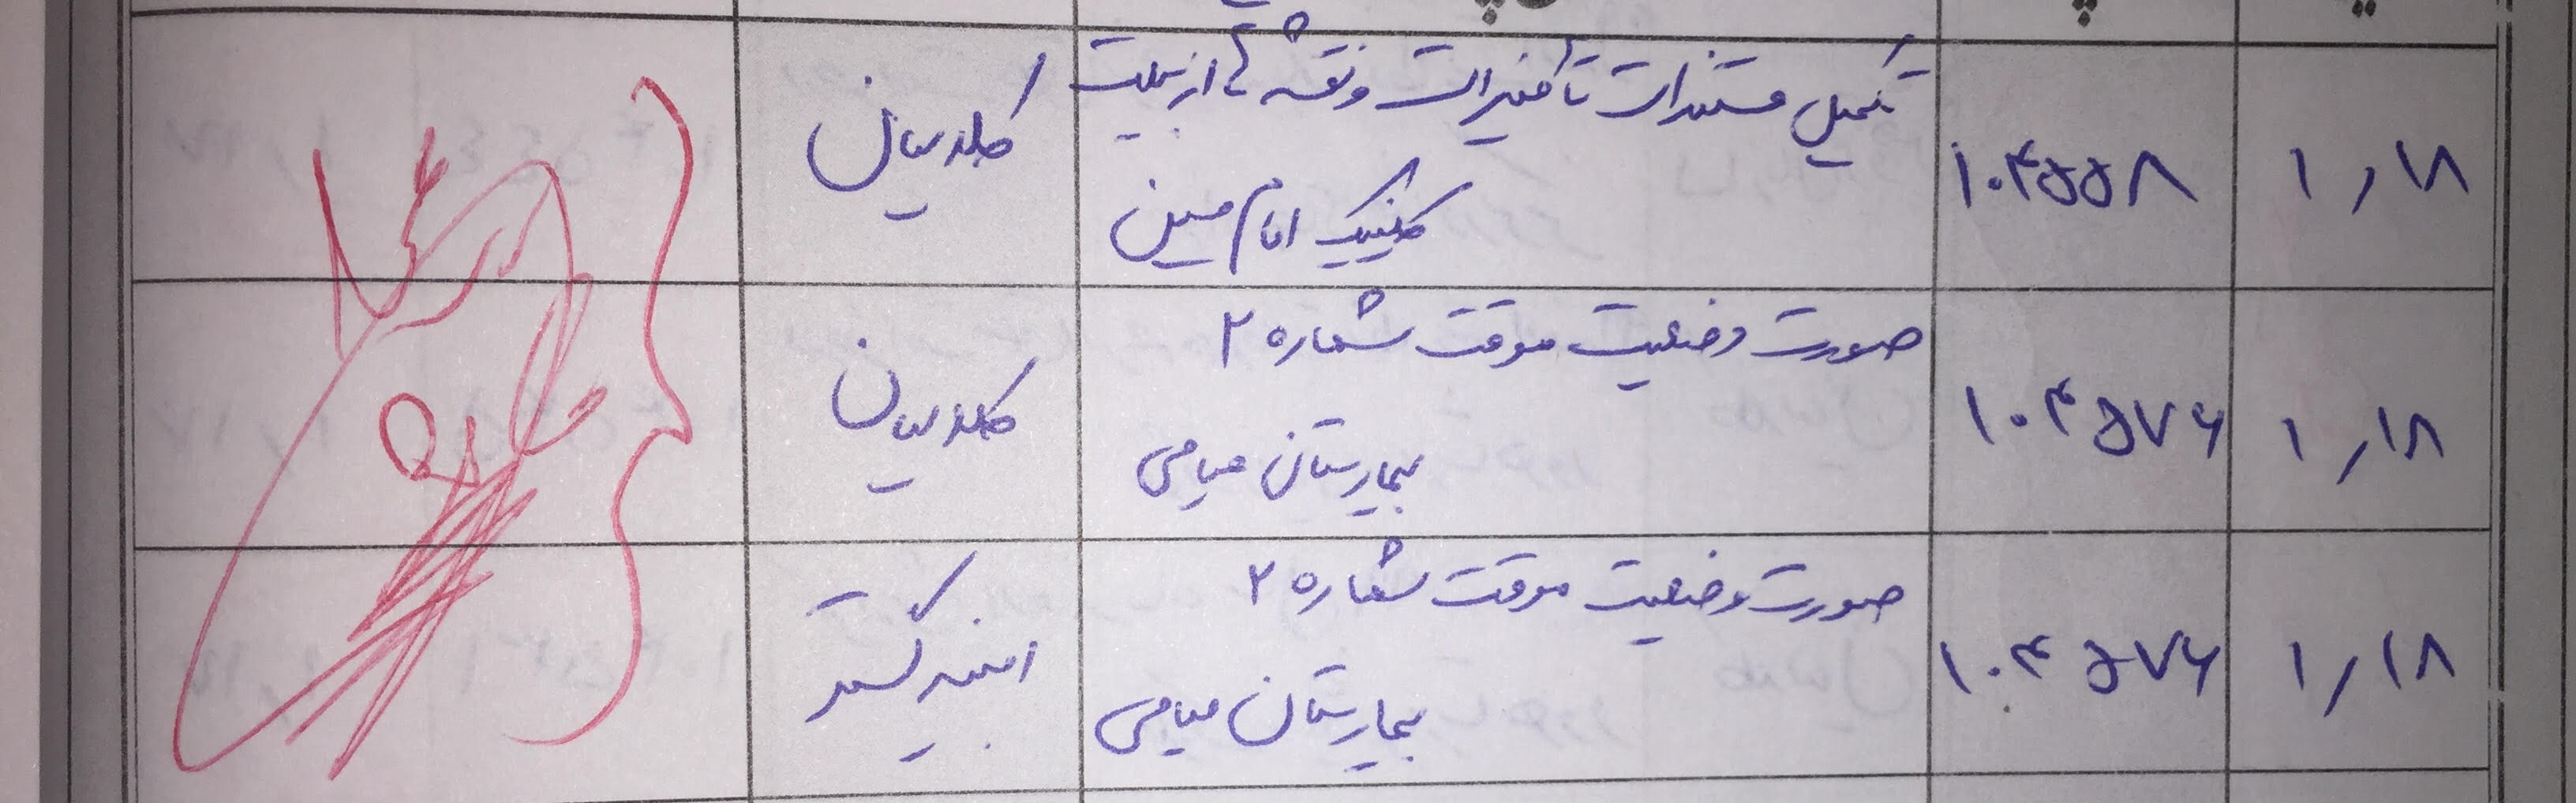 ۱٫۱۸
۱۰۴۵۵۸
تکمیل مستندات تأخیرات وقفه ها از بابت
کلینیک امام حسین
کلدسیان
۱٫۱۸
۱۰۴۵۷۶
صورت وضعیت موقت شماره ۲
بیمارستان میامی
کلدسیان
۱٫۱۸
۱۰۴۵۷۶
صورت وضعیت موقت شماره ۲
بیمارستان میامی
ابنیه گستر